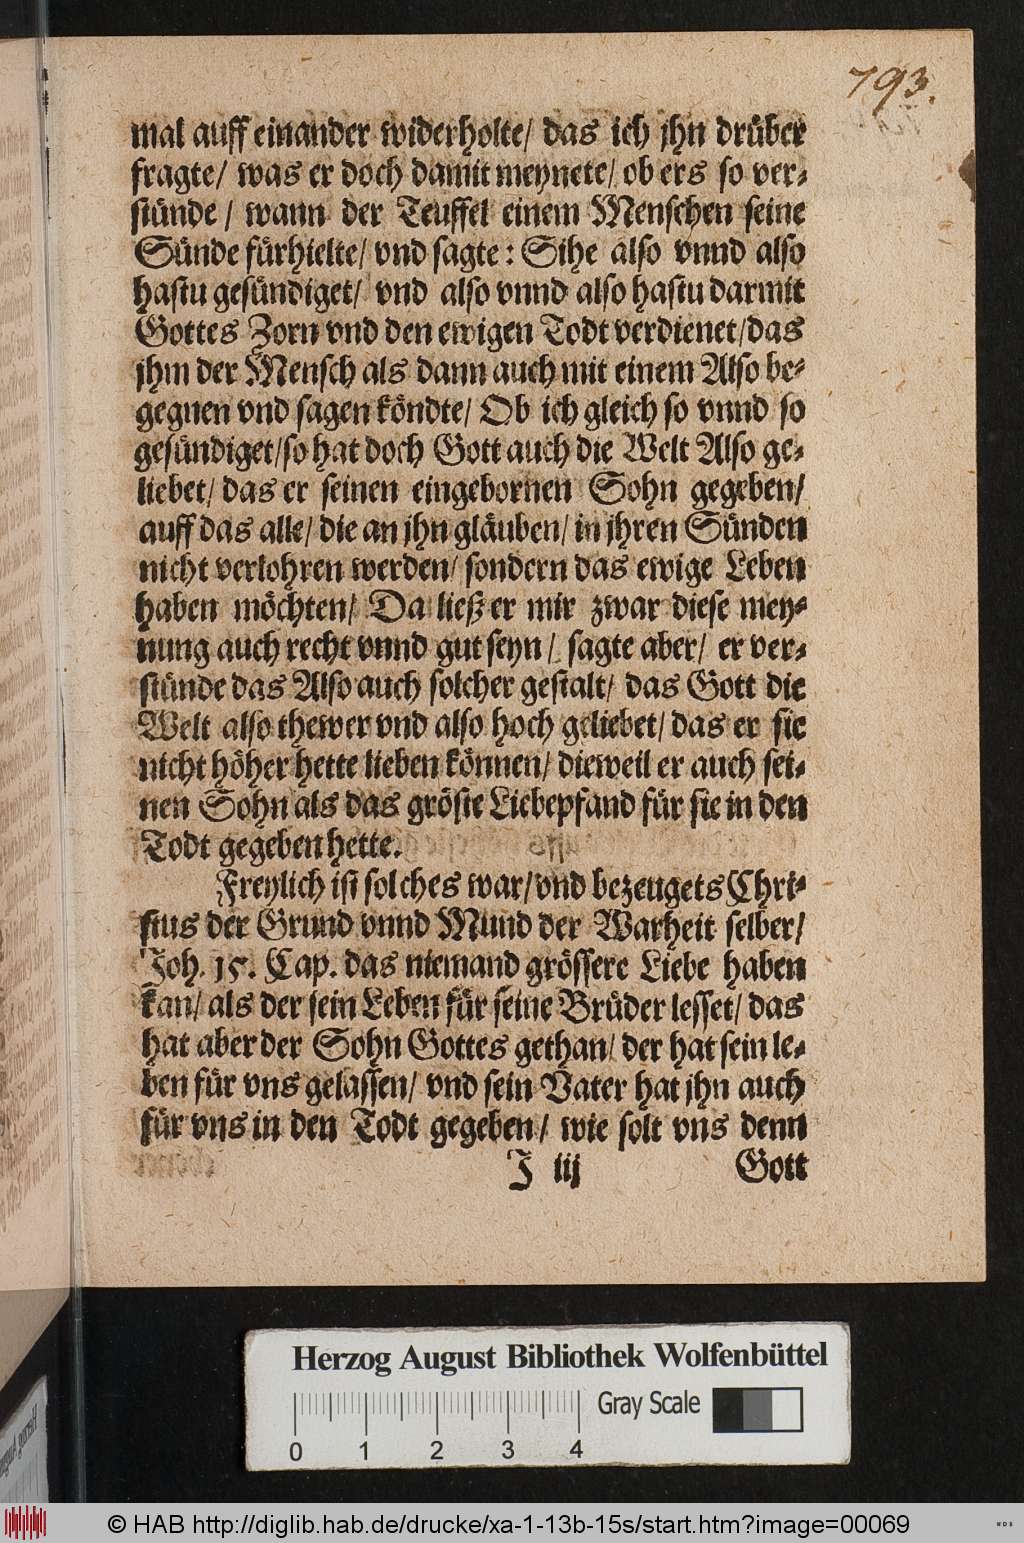 793.
mal auff einander widerholte/ das ich jhn drüber
fragte/ was er doch damit meynete/ ob ers so ver-
stünde/ wann der Teuffel einem Menschen seine
Sünde fürhielte/ vnd sagte: Sihe also vnnd also
hastu gesündiget/ vnd also vnnd also hastu darmit
Gottes Zorn vnd den ewigen Todt verdienet/das
jhm der Mensch als dann auch mit einem Also be-
gegnen vnd sagen köndte/ Ob ich gleich so vnnd so
gesündiget/so hat doch Gott auch die Welt Also ge-
liebet/ das er seinen eingebornen Sohn gegeben/
auff das alle/ die an jhn gläuben/ in jhren Sünden
nicht verlohren werden/ sondern das ewige Leben
haben möchten/ Da ließ er mir zwar diese mey-
nung auch recht vnnd gut seyn/ sagte aber/ er ver-
stünde das Also auch solcher gestalt/ das Gott die
Welt also thewer vnd also hoch geliebet/ das er sie
nicht höher hette lieben können/ dieweil er auch sei-
nen Sohn als das gröste Liebepfand für sie in den
Todt gegeben hette.
Freylich ist solches war/ vnd bezeugets Chri-
stus der Grund vnnd Mund der Warheit selber/
Joh. 15. Cap. das niemand grössere Liebe haben
kan/ als der sein Leben für seine Brüder lesset/ das
hat aber der Sohn Gottes gethan/ der hat sein le-
ben für vns gelassen/ vnd sein Vater hat jhn auch
für vns in den Todt gegeben/ wie solt vns denn
J iij Gott
Herzog August Bibliothek Wolfenbüttel
Gray Scale
0 1 2 3 4
© HAB http://diglib.hab.de/drucke/xa-1-13b-15s/start.htm?image=00069